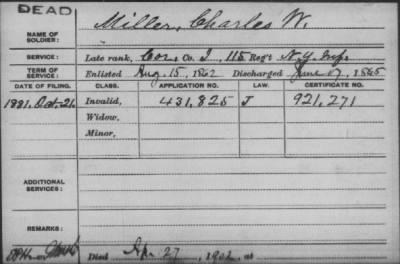 DEAD
Miller, Charles W.
NAME OF SOLDIER:
SERVICE: Late rank, Cor, Co. I, 115 Reg't N.Y. Inf.
TERM OF SERVICE: Enlisted Aug. 15, 1862 Discharged June 17, 1865
DATE OF FILING. CLASS. APPLICATION NO. LAW. CERTIFICATE NO.
1881, Oct. 21. Invalid, 431,825 J 921,271
Widow,
Minor,
ADDITIONAL SERVICES:
REMARKS:
Died Apr. 27, 1902, at